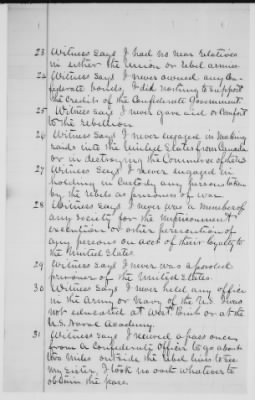 23 Witness Says I had no near relatives
in either the Union or rebel armies
24 Witness Says I never owned any Con-
federate bonds, I did nothing to support
the Credits of the Confederate Government
25 Witness Says I never gave aid or Comfort
to the rebellion.
26 Witness Says I never engaged in making
raids into the United States from Canada
or in destroying the Commerce of
27 Witness Says I never engaged in
holding in Custody any persons taken
by the rebels as prisoners of war
28 Witness Says I never was a member of
any Society for the imprisonment
execution or other persecution of
any persons on acct of their loyalty to
the United States.
29 Witness Says I never was a paroled
prisoner of the United States
30 Witness Says I never held any office
in the Army or Navy of the U.S. I was
not educated at West Point or at the
U.S. Naval Academy.
31 Witness Says I received a pass once
from A Confederate Officer to go about
two Miles outside the rebel lines to see
my Sister, I took no oath whatever to
obtain the pass.